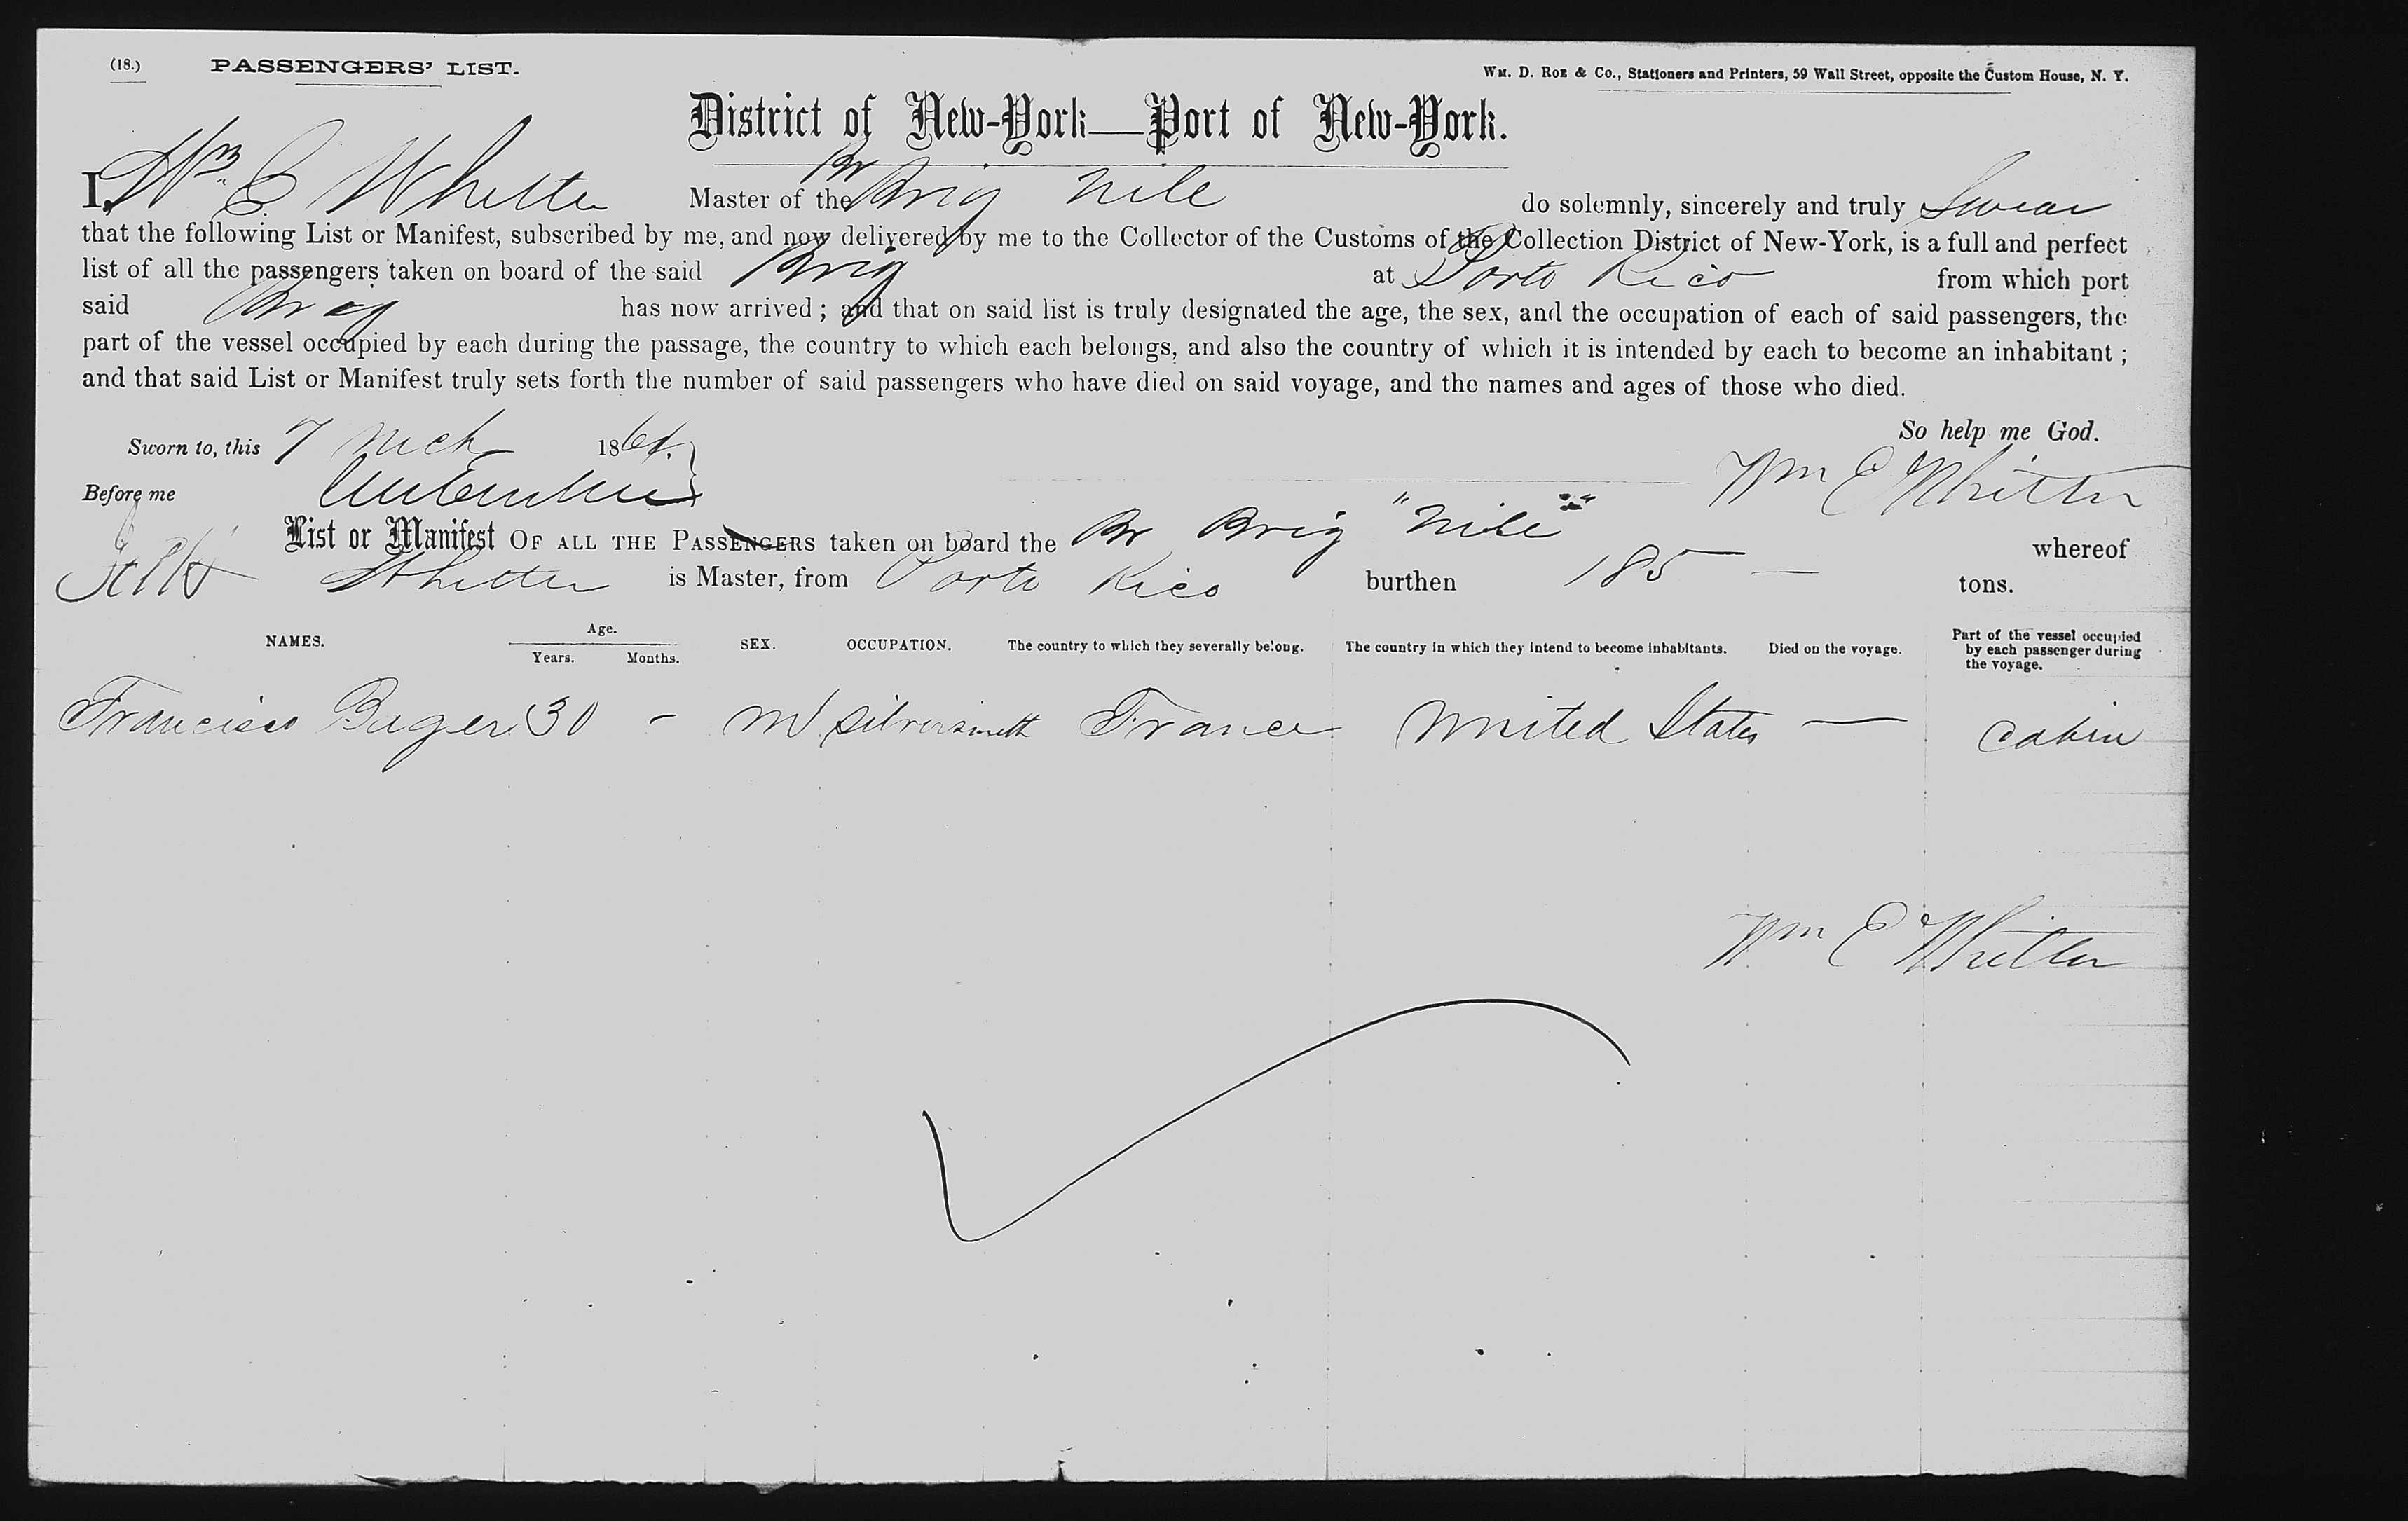 (18.) PASSENGERS' LIST. Wm. D. Roe & Co., Stationers and Printers, 59 Wall Street, opposite the Custom House, N. Y.
District of New-York—Port of New-York.
I, Wm. E Whitter Master of the Br Brig Nile do solemnly, sincerely and truly Swear
that the following List or Manifest, subscribed by me, and now delivered by me to the Collector of the Customs of the Collection District of New-York, is a full and perfect
list of all the passengers taken on board of the said Brig at Porto Rico from which port
said Brig has now arrived; and that on said list is truly designated the age, the sex, and the occupation of each of said passengers, the
part of the vessel occupied by each during the passage, the country to which each belongs, and also the country of which it is intended by each to become an inhabitant;
and that said List or Manifest truly sets forth the number of said passengers who have died on said voyage, and the names and ages of those who died.
So help me God.
Sworn to, this 7 Mch 1861.
Wm E Whitter
Before me
List or Manifest OF ALL THE PASSENGERS taken on board the Br Brig "Nile" whereof
Whitter is Master, from Porto Rico burthen 185 — tons.
NAMES. Age. Years. Months. SEX. OCCUPATION. The country to which they severally belong. The country in which they intend to become inhabitants. Died on the voyage. Part of the vessel occupied by each passenger during the voyage.
Francisco Buger 30 - M Silversmith France United States — Cabin
Wm E Whitter